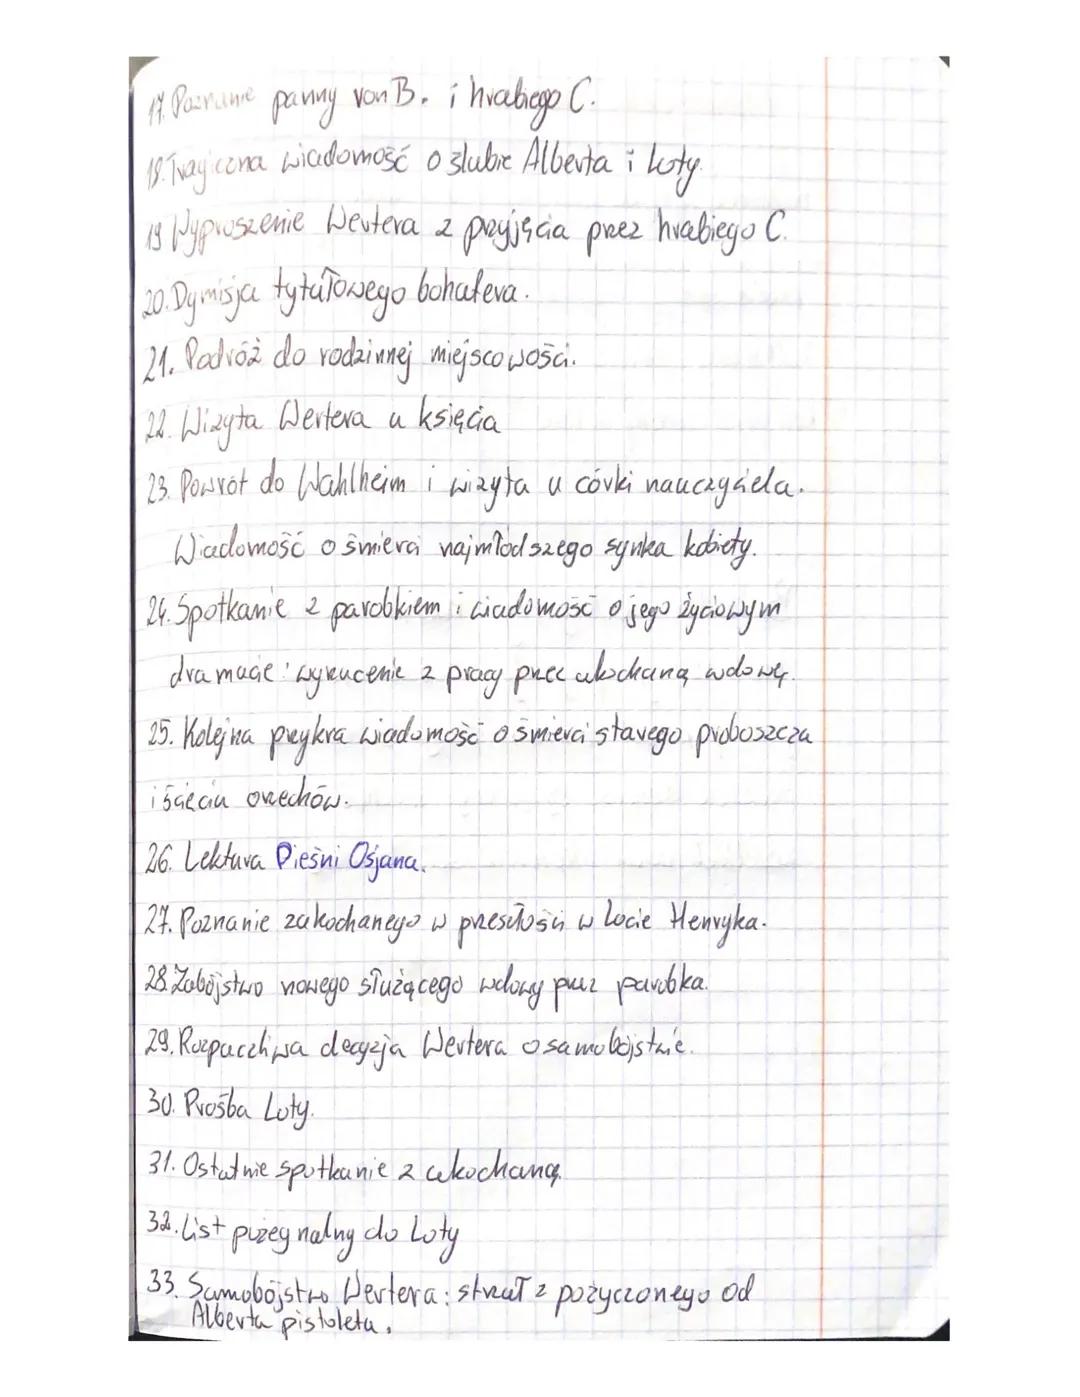 17. Poznanie panny von B. i hrabiego C.
18. Tragiczna wiadomość o ślubie Alberta i Loty.
19 Wyproszenie Wertera z przyjęcia przez hrabiego C.
20. Dymisja tytułowego bohatera.
21. Podróż do rodzinnej miejscowości.
22. Wizyta Wertera u księcia
23. Powrót do Wahlheim i wizyta u córki nauczyciela.
Wiadomość o śmierci najmłodszego synka kobiety.
24. Spotkanie z parobkiem i wiadomość o jego życiowym
dramacie: wyrzucenie z pracy przez ukochaną wdowę.
25. Kolejna przykra wiadomość o śmierci starego proboszcza
i ścięciu orzechów.
26. Lektura Pieśni Osjana.
27. Poznanie zakochanego w przeszłości w Locie Henryka.
28. Zabójstwo nowego służącego wdowy przez parobka.
29. Rozpaczliwa decyzja Wertera o samobójstwie.
30. Prośba Loty.
31. Ostatnie spotkanie z ukochaną.
32. List pożegnalny do Loty
33. Samobójstwo Wertera: strzał z pożyczonego od
Alberta pistoletu.